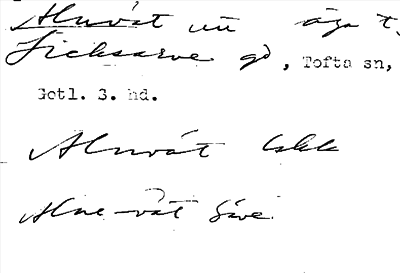 Alnvät un äga t.
Licksarve gd, Tofta sn,
Gotl. 3. hd.
Alnvät lskk
Alne-vät Säve